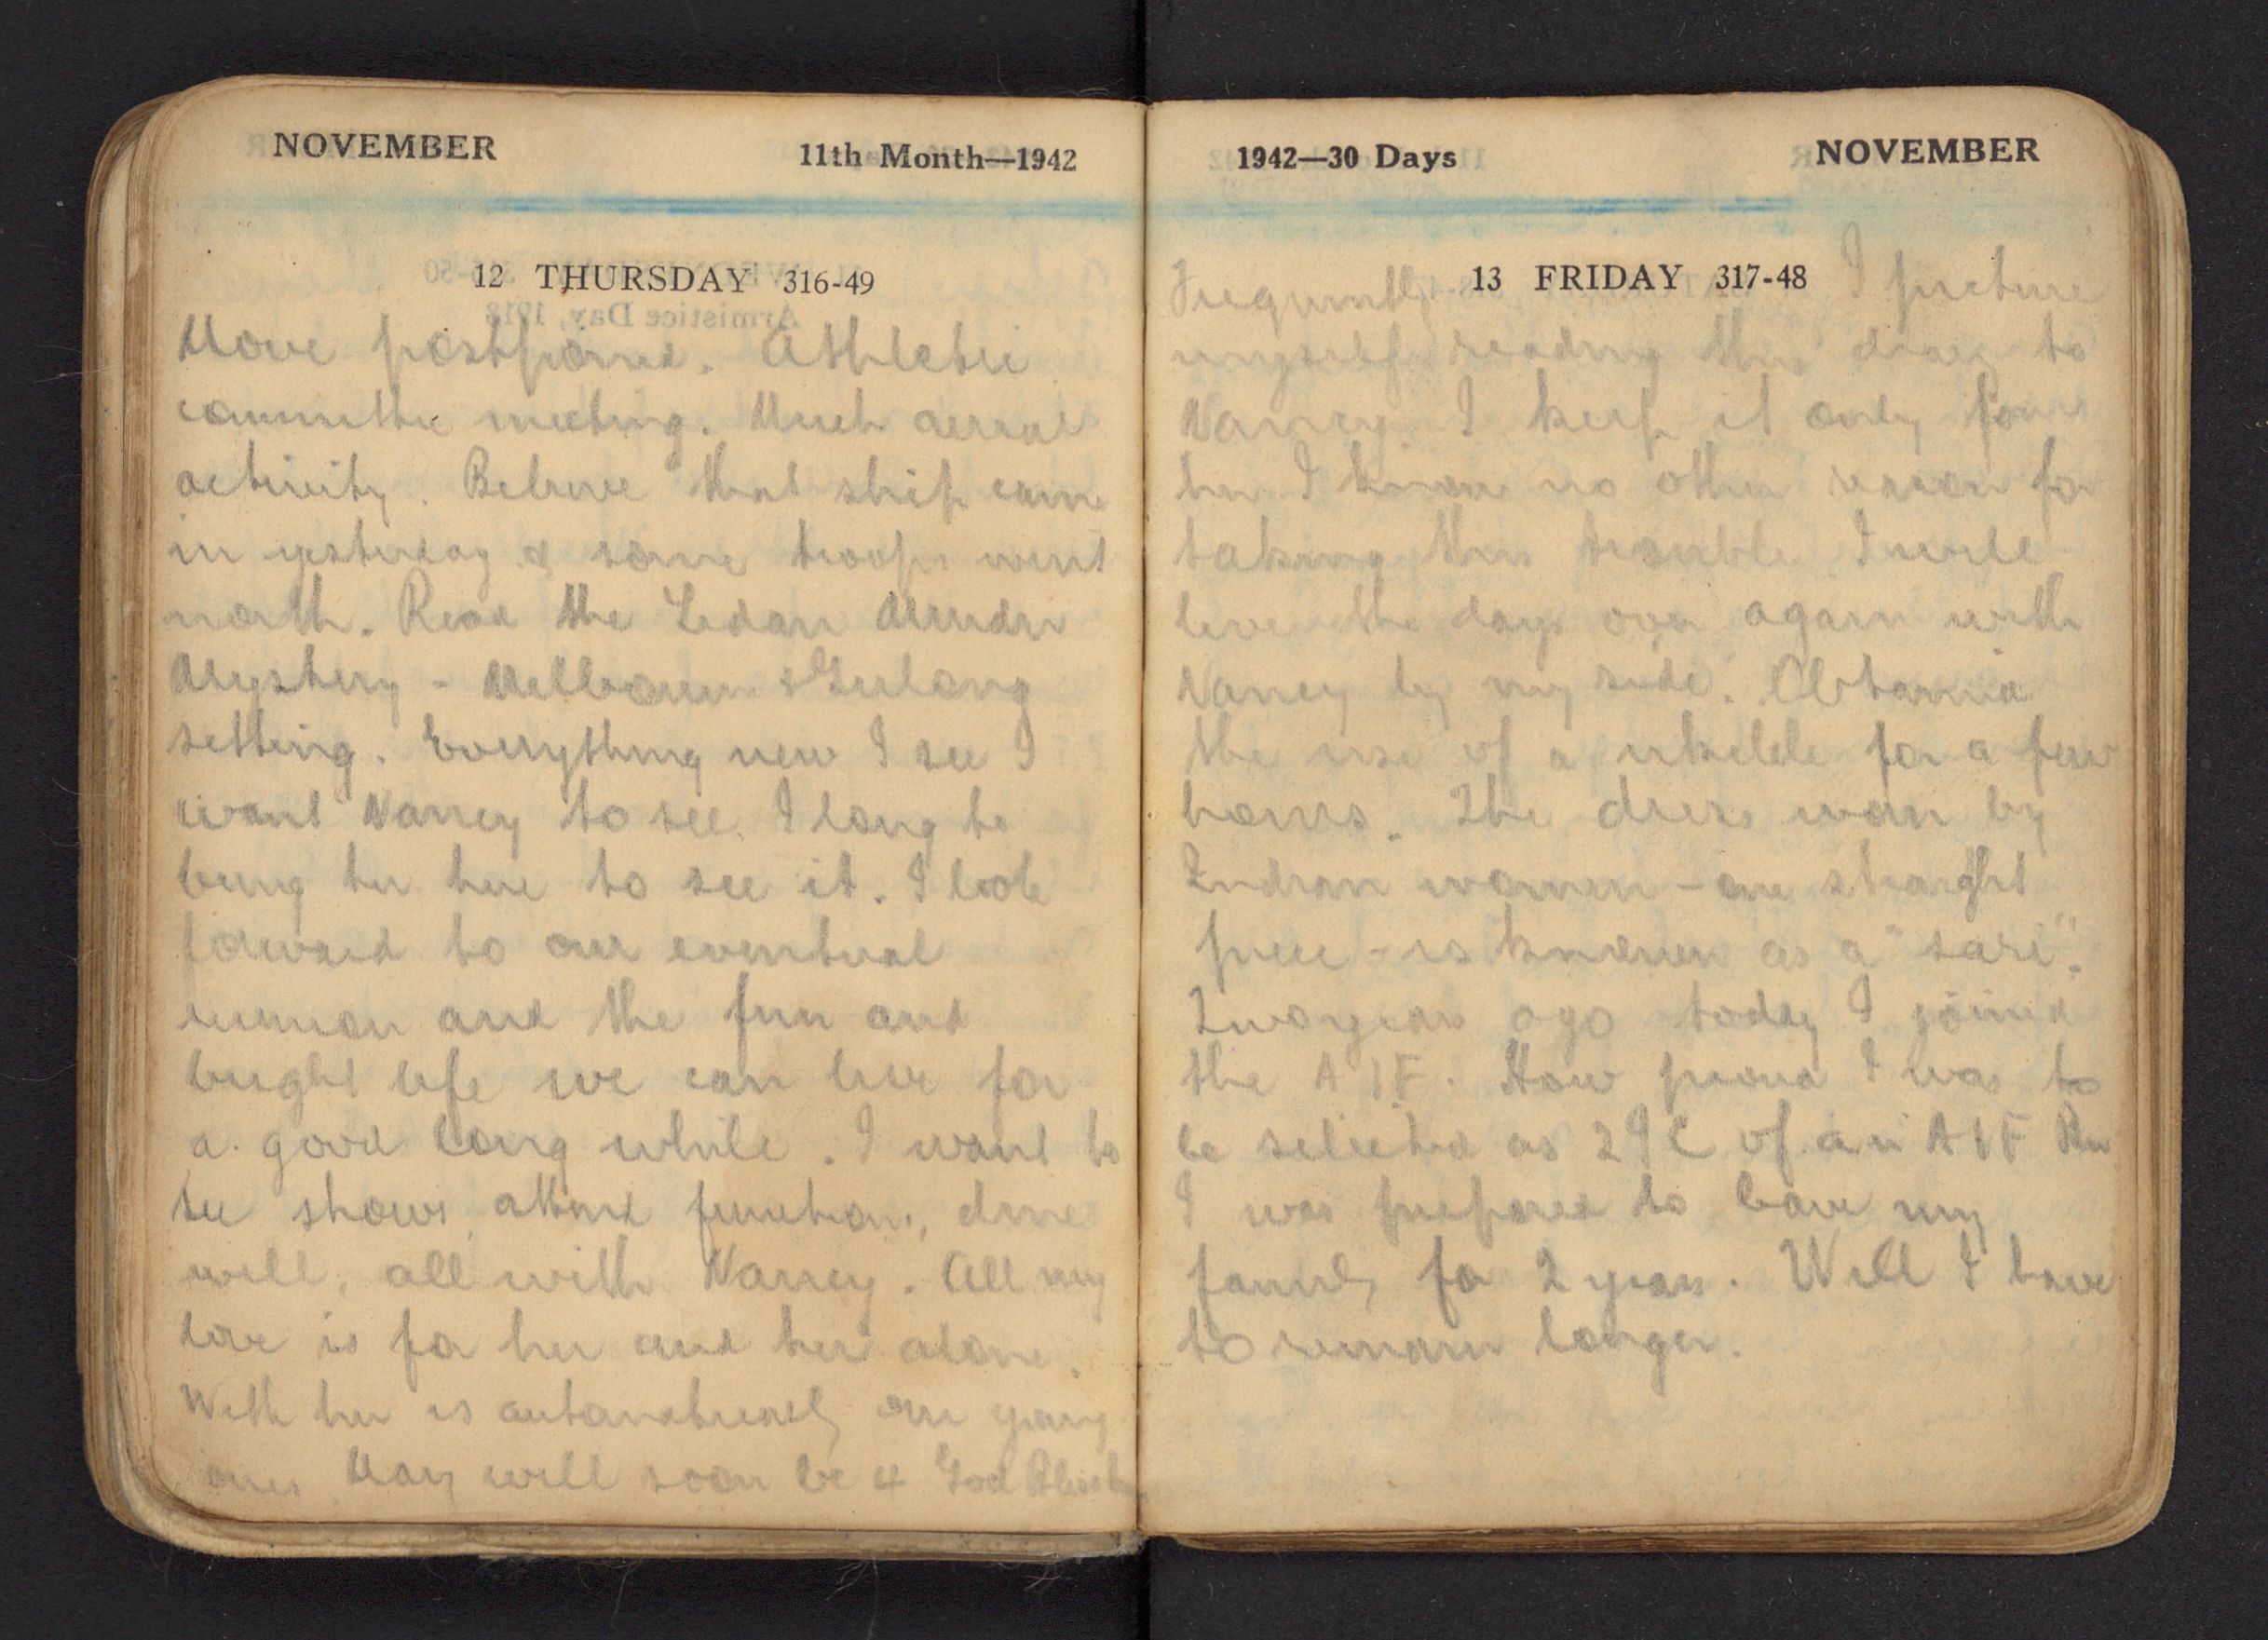 NOVEMBER 11th Month—1942
12 THURSDAY 316-49
Move postponed. Athletic
committee meeting. Much aerial
activity. Believe that ship came
in yesterday & some troops went
north. Read the Sedan Murder
Mystery - Melbourne & Geelong
setting. Everything new I see I
want Nancy to see. I long to
bring her here to see it. I look
forward to our eventual
reunion and the fun and
bright life we can live for
a good long while. I want to
see shows, attend functions, dine
well, all with Nancy. All my
love is for her and her alone.
With her is automatically our young
ones May will soon be 4 God Bless her
1942—30 Days NOVEMBER
13 FRIDAY 317-48
Frequently I picture
myself reading this diary to
Nancy. I keep it only for
her I know no other reason for
taking this trouble. I will
live the days over again with
Nancy by my side. Obtained
the use of a ukelele for a few
hours. The dress worn by
Indian women - one straight
piece - is known as a "sari".
Two years ago today I joined
the AIF. How proud I was to
be selected as 2IC of an AIF Bn
I was prepared to leave my
family for 2 years. Will I have
to remain longer.